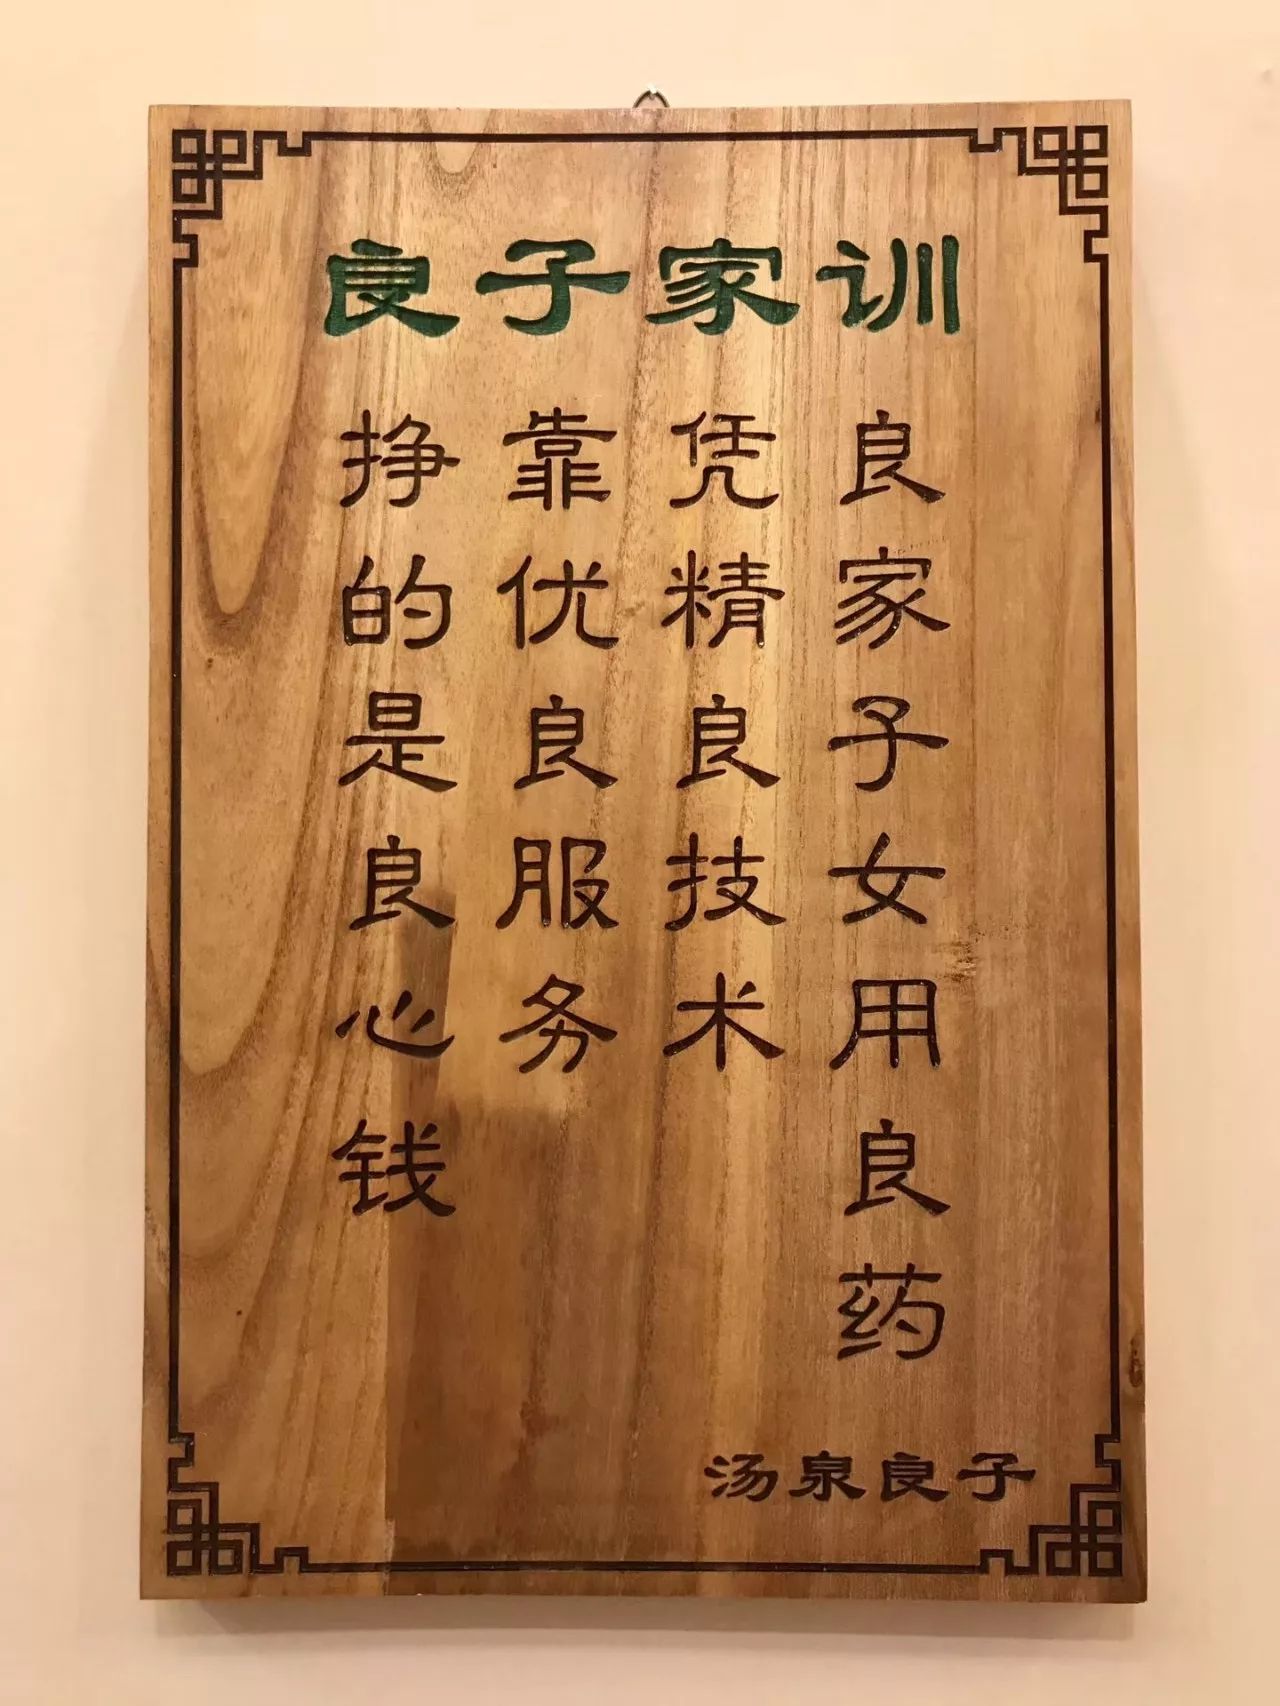 良子家训
良家子女用良药
凭精良技术
靠优良服务
挣的是良心钱
汤泉良子